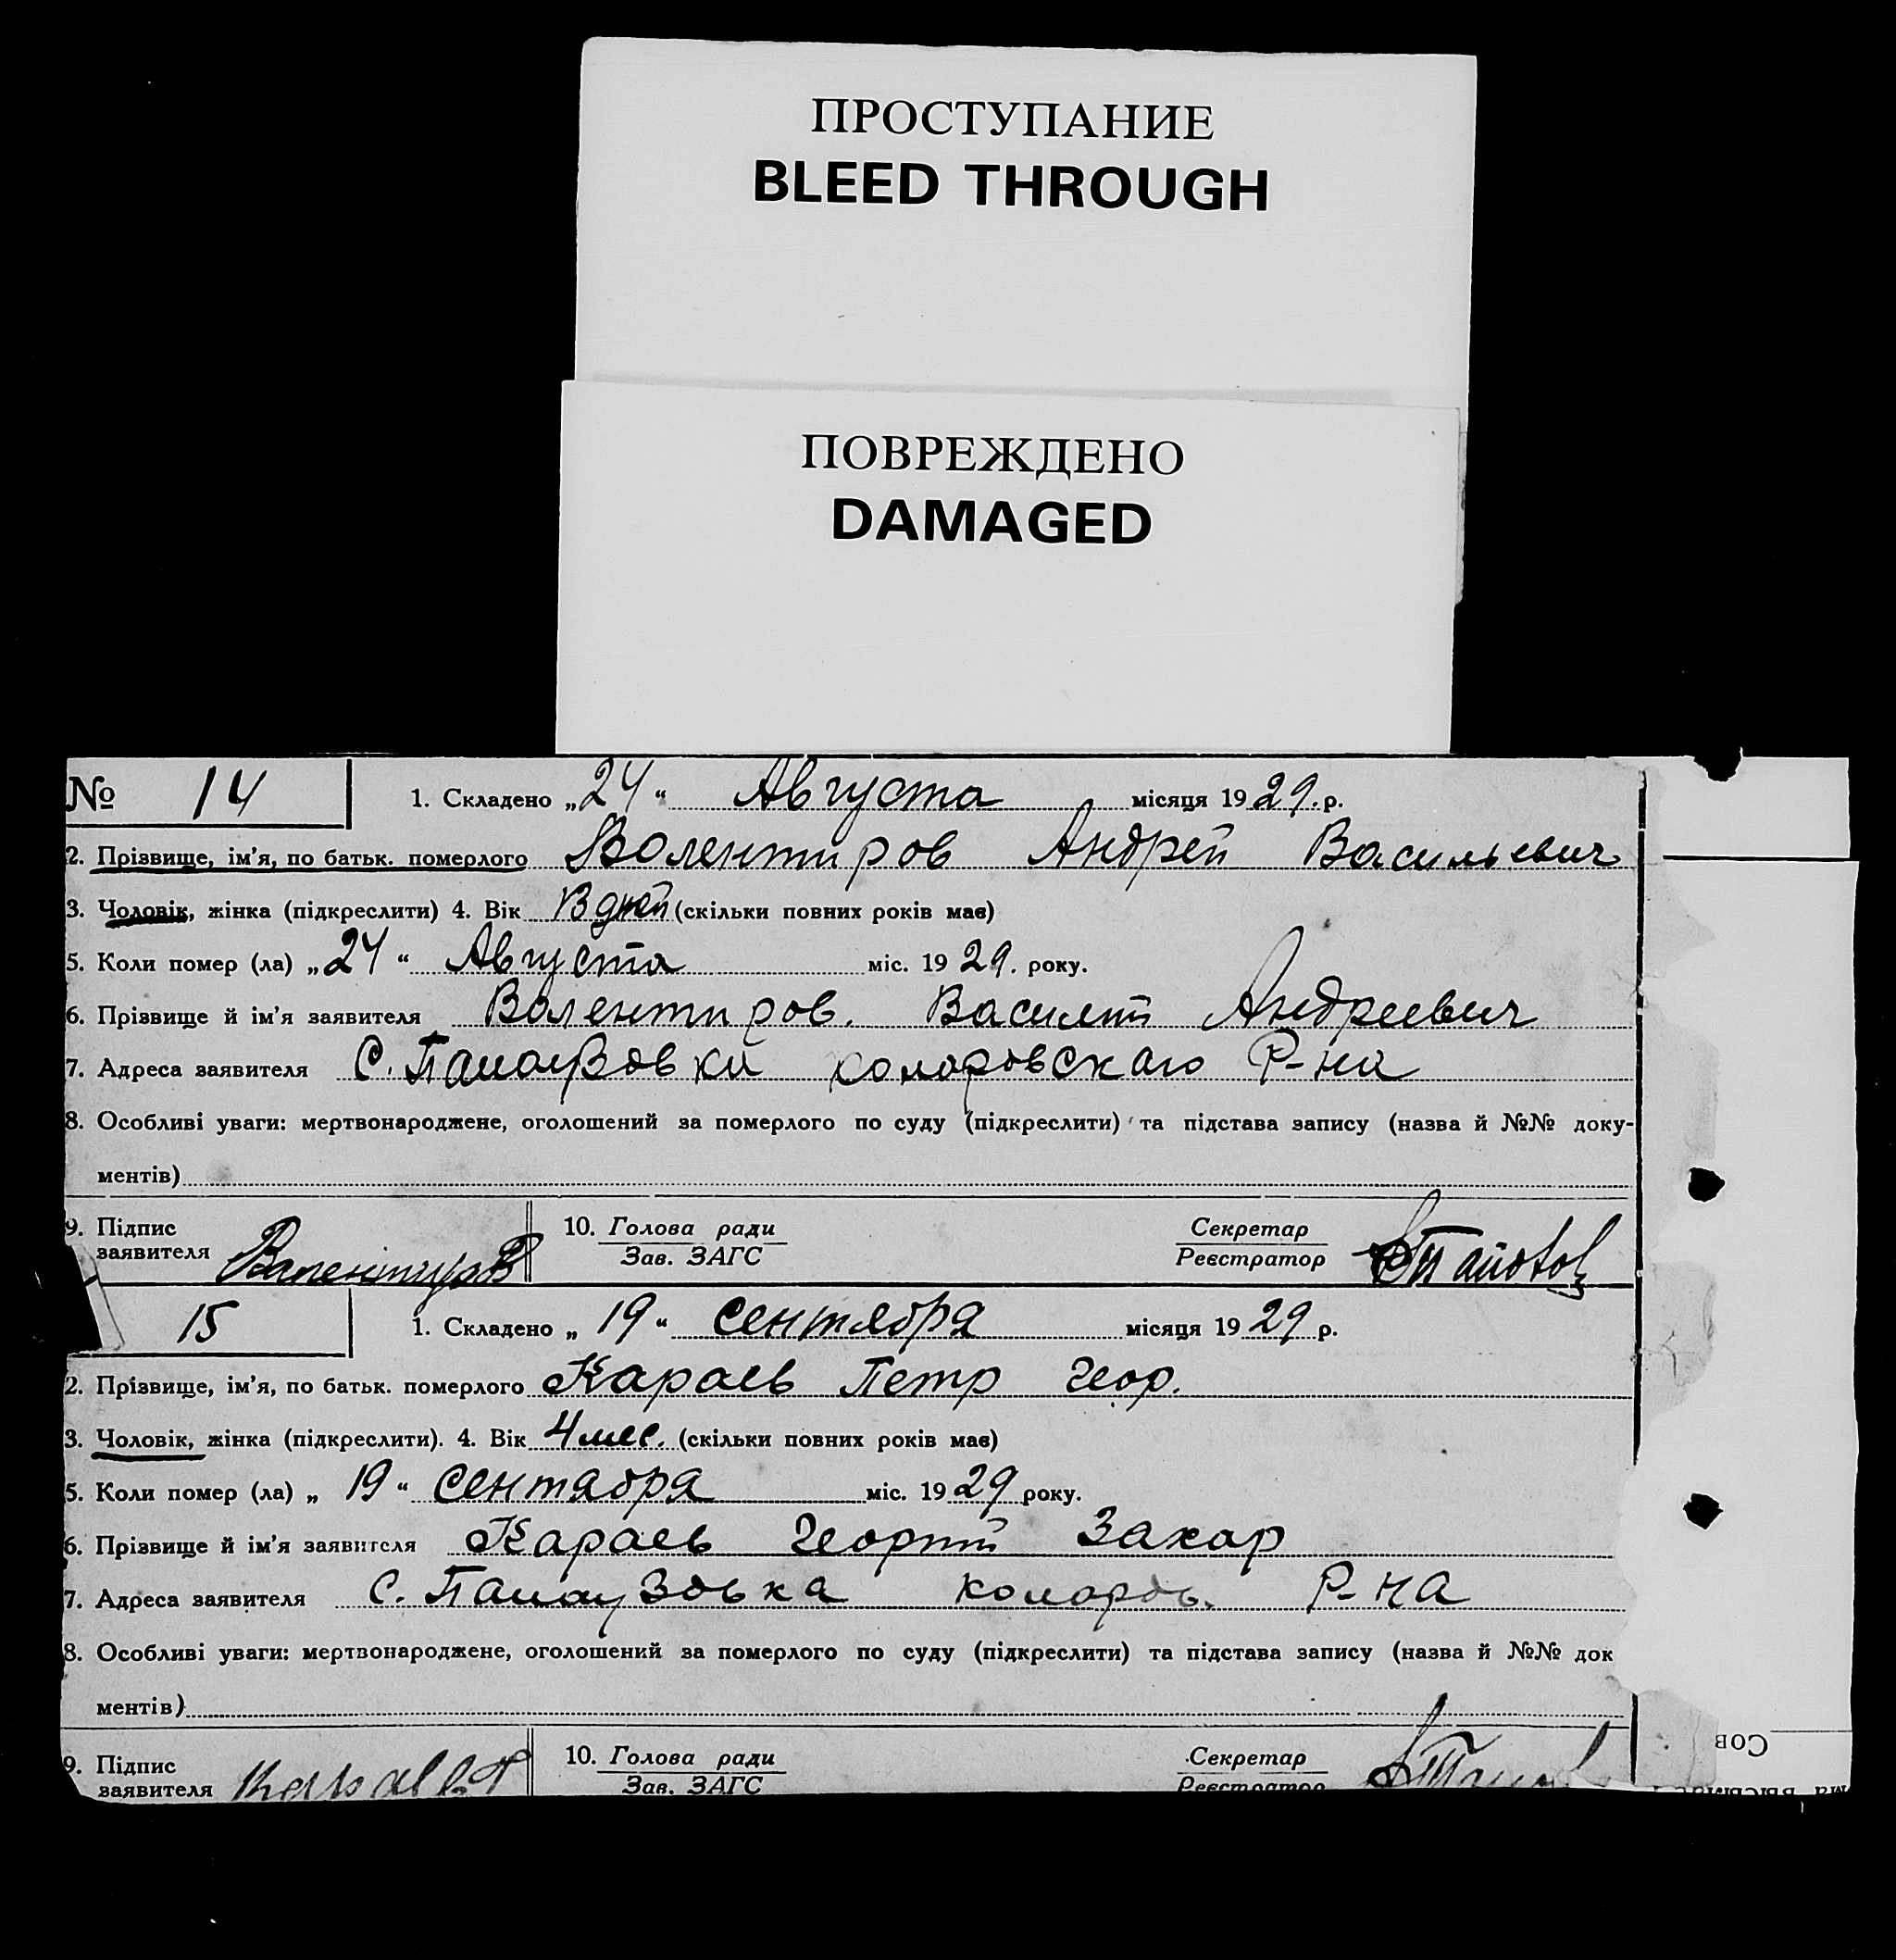 ПРОСТУПАНИЕ
BLEED THROUGH
ПОВРЕЖДЕНО
DAMAGED
№ 14 1. Складено „24“ Августа місяця 1929. р.
2. Прізвище, ім'я, по батьк. померлого Волентиров Андрей Васильевич
3. Чоловік, жінка (підкреслити) 4. Вік дней (скільки повних років має)
5. Коли помер (ла) „24“ Августа міс. 1929. року.
6. Прізвище й ім'я заявителя Волентиров. Василий Андреевич
7. Адреса заявителя С. коларовскаго Р-на
8. Особливі уваги: мертвонароджене, оголошений за померлого по суду (підкреслити) та підстава запису (назва й №№ доку-
ментів)
9. Підпис заявителя 10. Голова ради Секретар
Зав. ЗАГС Реєстратор
15 1. Складено „19“ сентября місяця 1929 р.
2. Прізвище, ім'я, по батьк. померлого Караев Петр Геор.
3. Чоловік, жінка (підкреслити). 4. Вік 4 мес. (скільки повних років має)
5. Коли помер (ла) „19“ сентября міс. 1929 року.
6. Прізвище й ім'я заявителя Караев Георгий Захар
7. Адреса заявителя С. коларов. Р-на
8. Особливі уваги: мертвонароджене, оголошений за померлого по суду (підкреслити) та підстава запису (назва й №№ док
ментів)
9. Підпис заявителя 10. Голова ради Секретар
Зав. ЗАГС Реєстратор
Сов